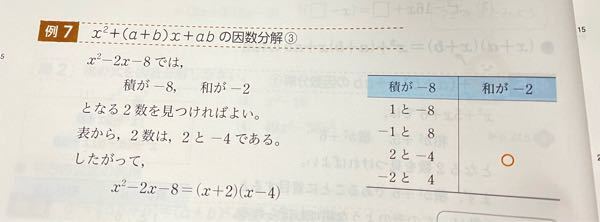 例 7 x²+(a+b)x+abの因数分解③
x²−2x−8では,
積が −8, 和が −2
となる2数を見つければよい。
表から, 2数は, 2と −4である。
したがって,
x²−2x−8=(x+2)(x−4)
積が −8 和が −2
1と −8
−1と 8
2と −4 ○
−2と 4
15